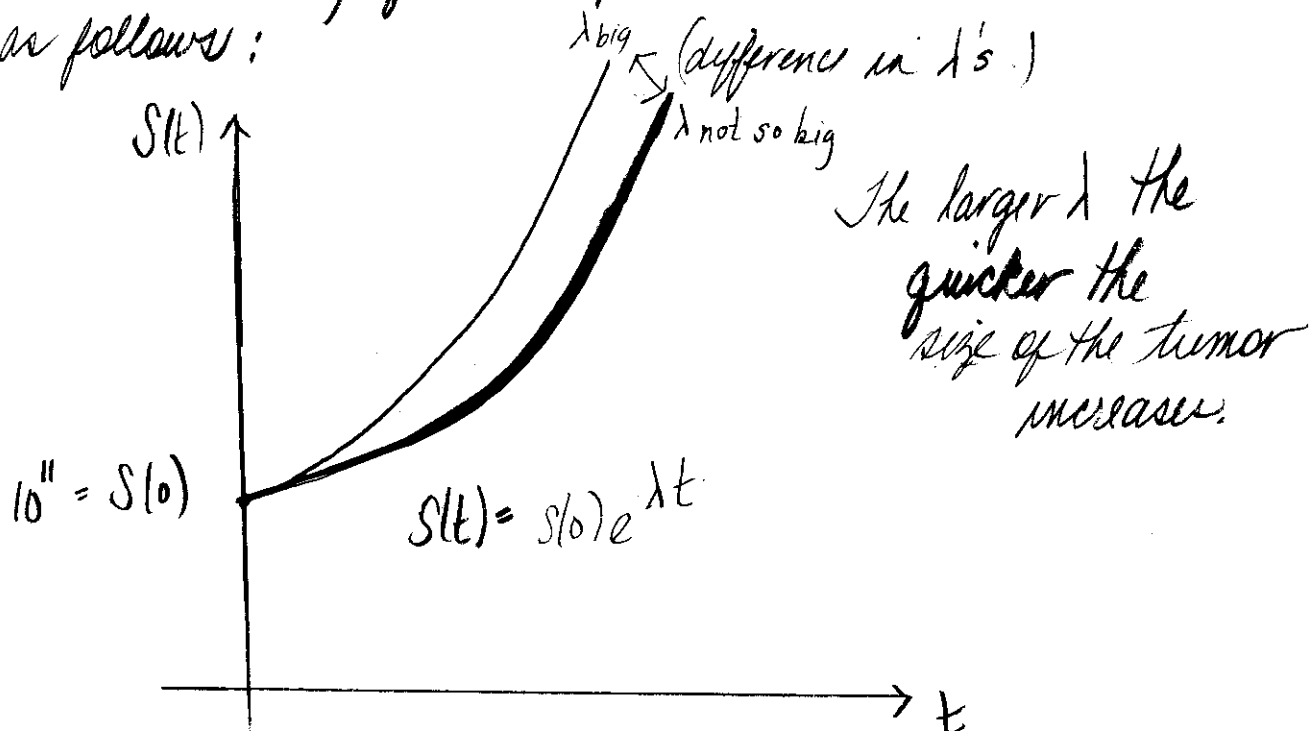 as follows:
λ big
(difference in λ's.)
λ not so big
S(t)
The larger λ the
quicker the
size of the tumor
increases.
10" = S(0)
S(t) = S(0)e^λt
t